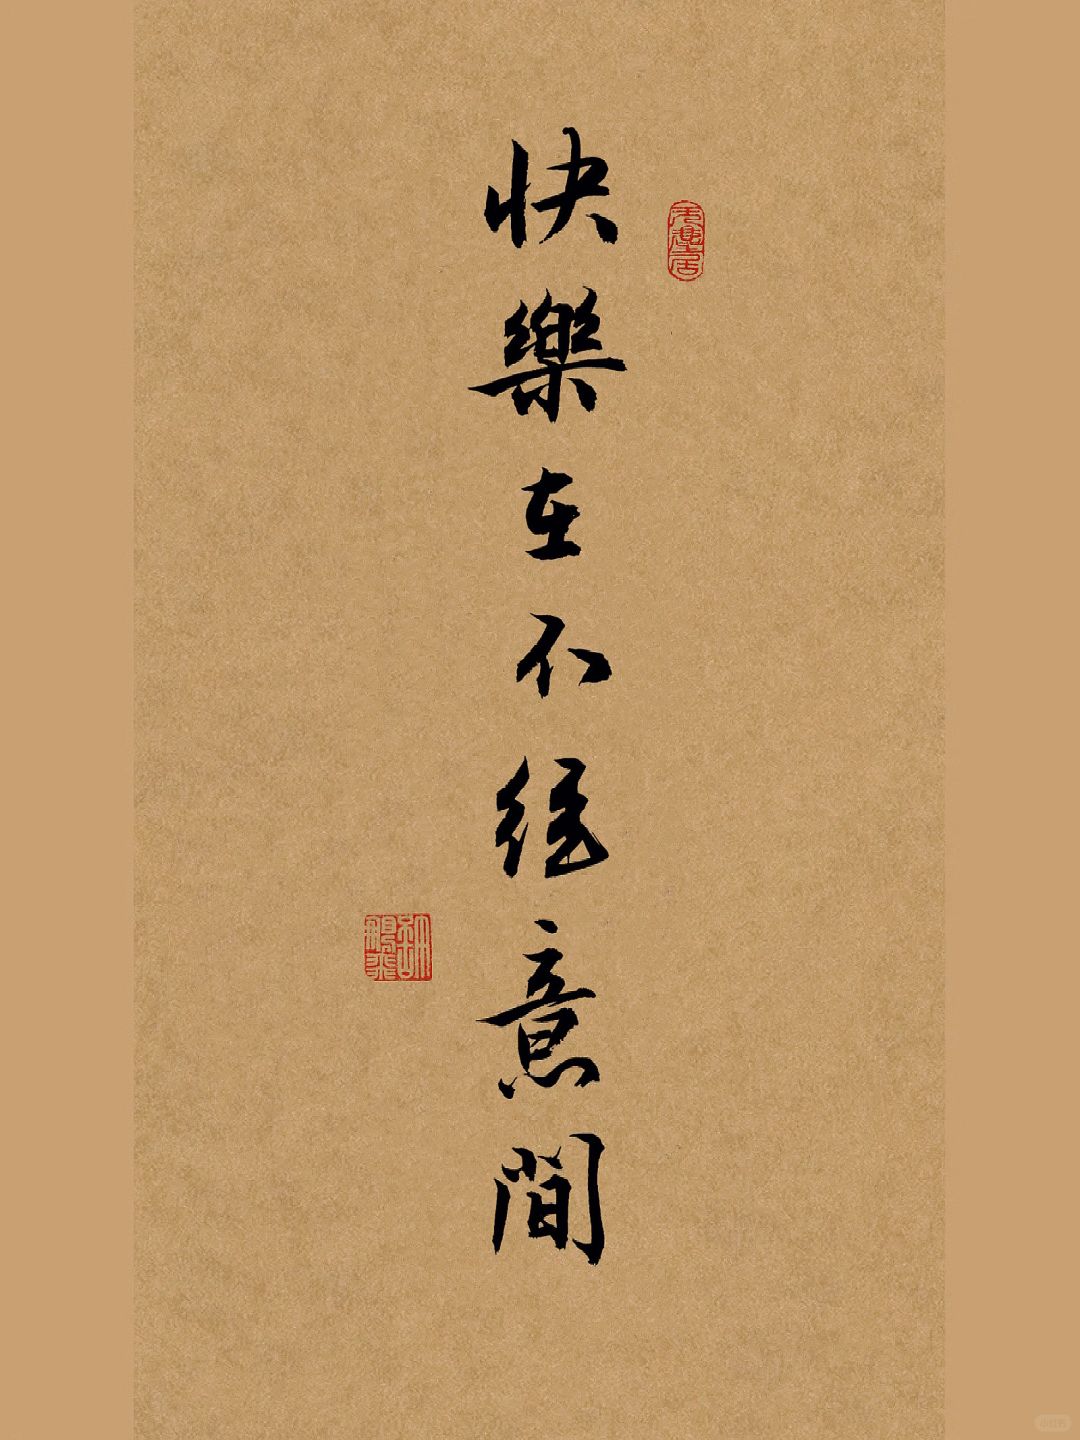 快樂在不經意間